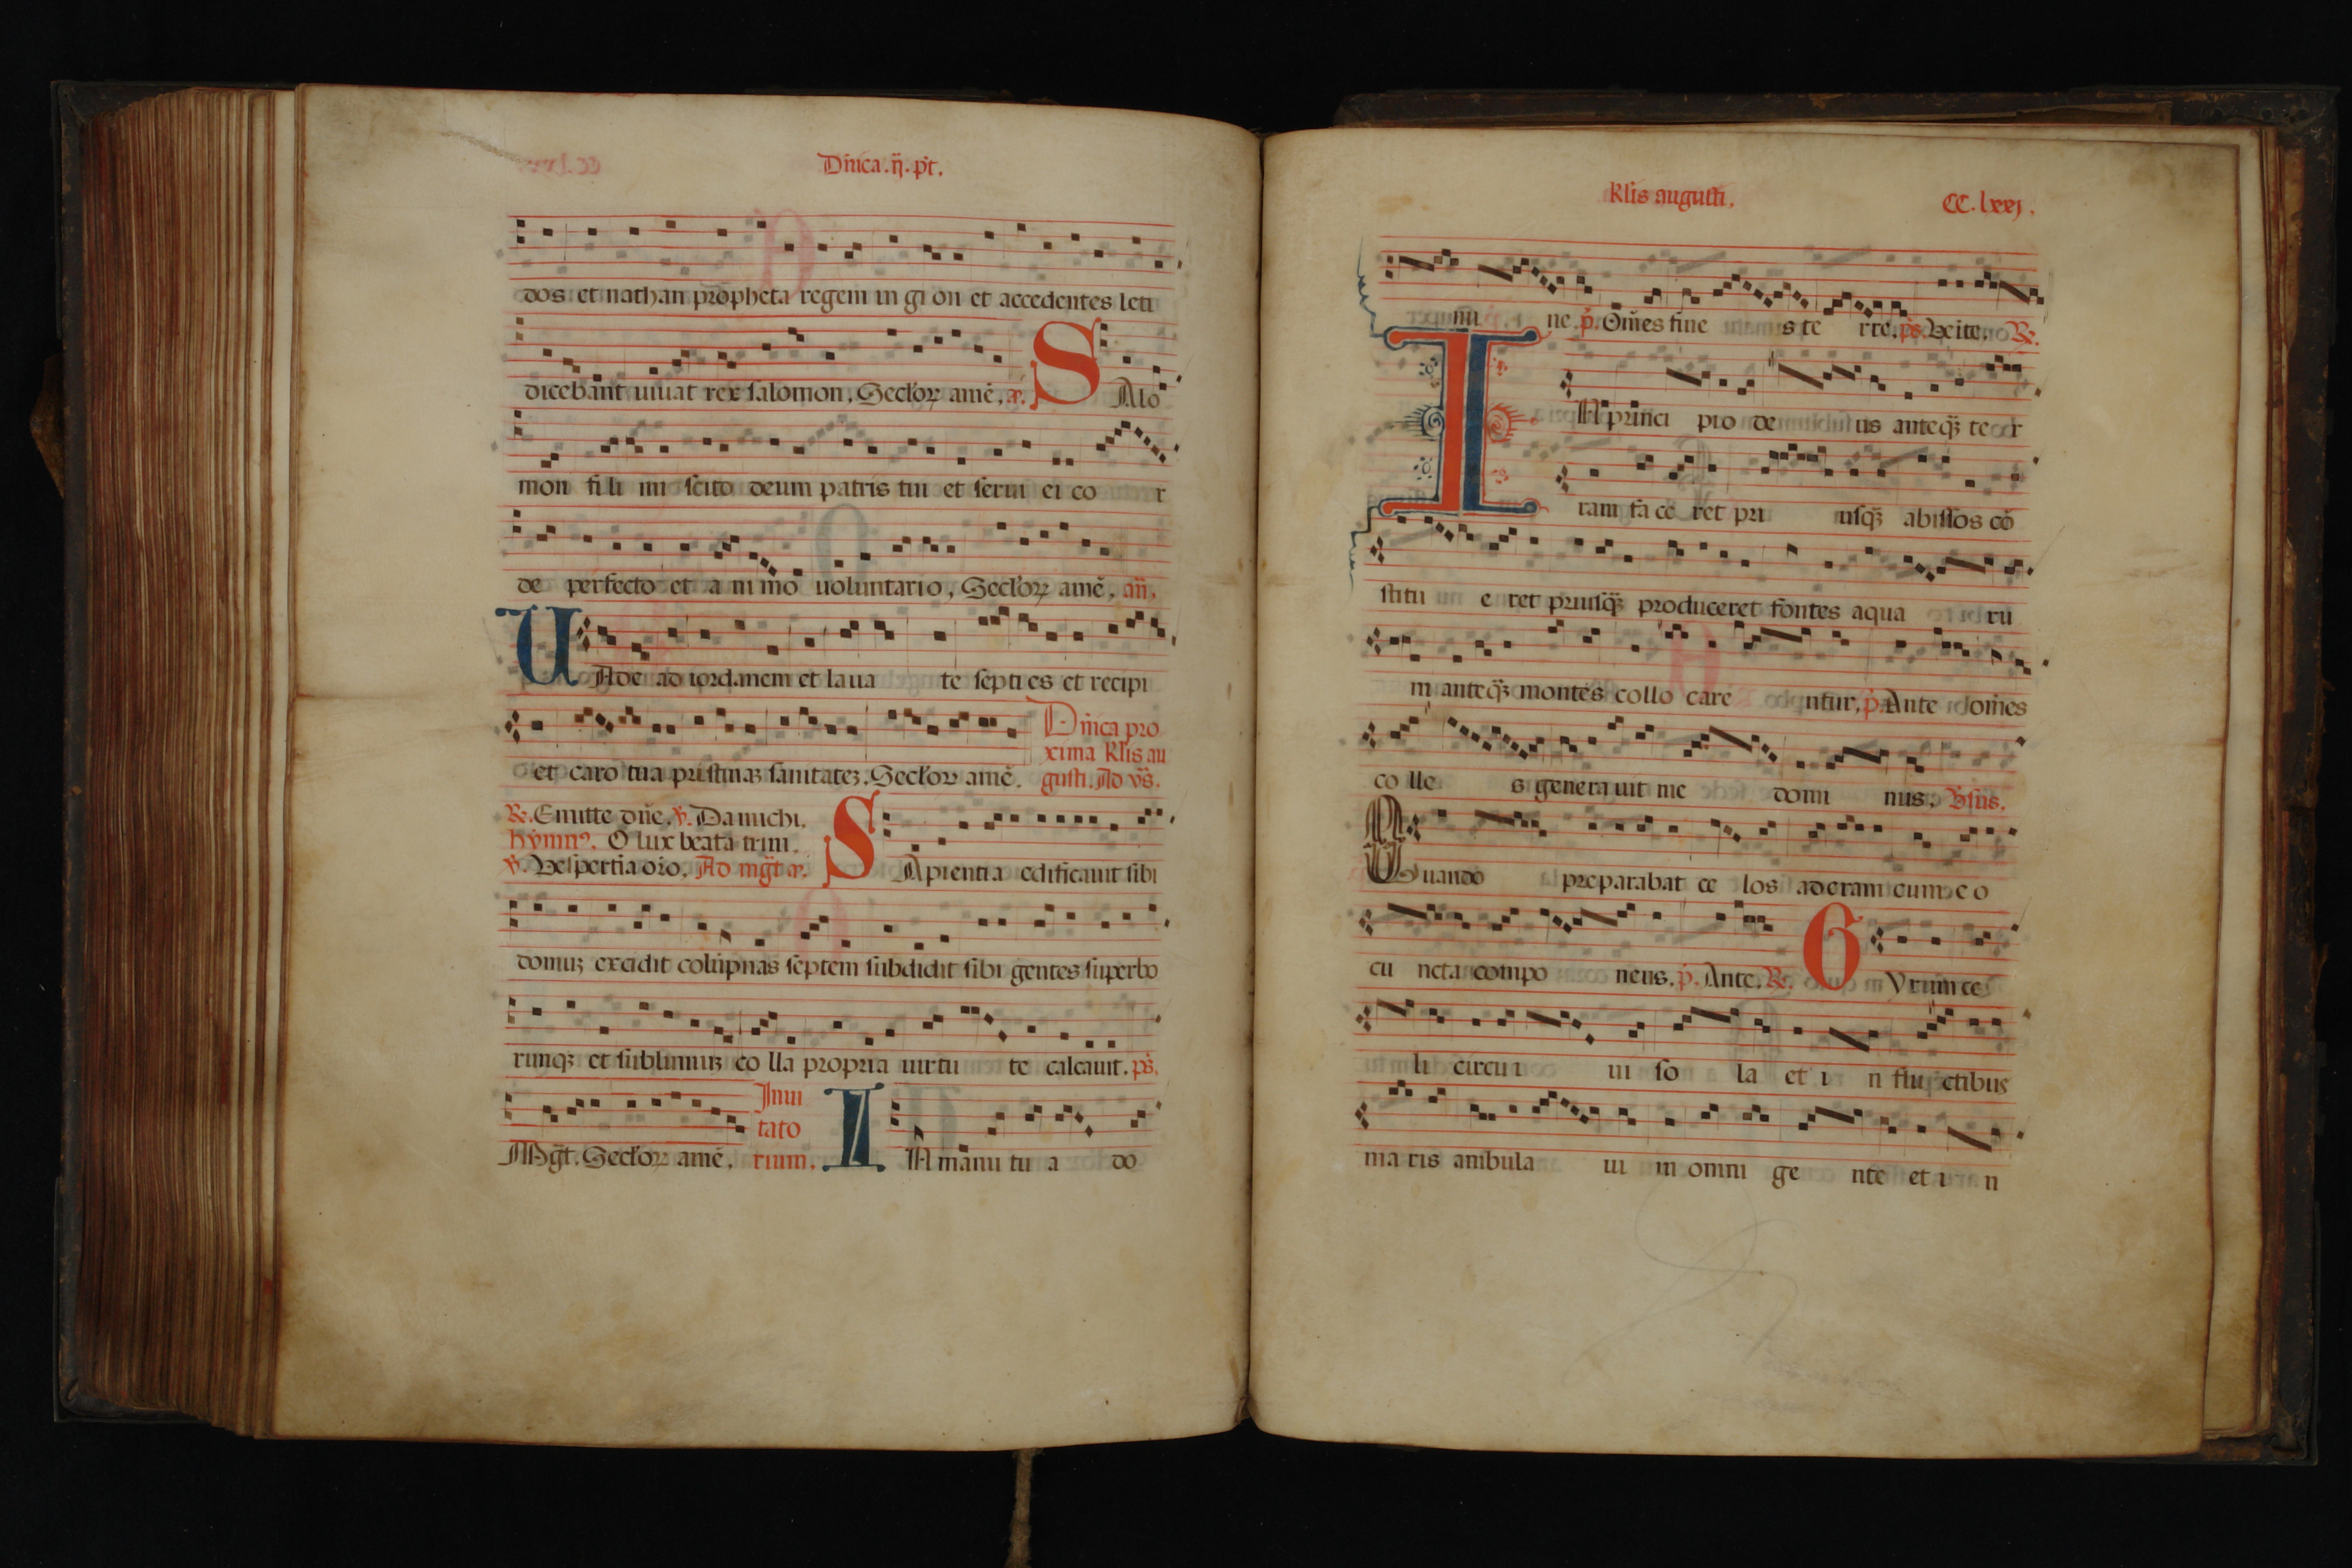 Dñica.ij.pt.
dos et nathan propheta regem in gi on et accedentes leti
dicebant uiuat rex salomon. Seclor amē. S Alo
mon fi li mi scito deum patris tui et serui ei co r
de perfecto et a ni mo uoluntario, Seclor amē. añ.
U Ade ad iordanem et laua te septi es et recipi
et caro tua pristinaz sanitatez. Seclor amē.
Dñica pro
xima klis au
gusti. Ad vs.
R. Emitte dñe. v. Da michi.
hymn9. O lux beata trini.
v. Vespertia oro. Ad mgt
S Apientia edificauit sibi
domuz excidit colupnas septem subdidit sibi gentes superbo
rumqz et sublimiuz co lla propria uirtu te calcauit. ps.
Mgt. Seclor amē. Inui
tato
rium. I N manu tu a do
Klis augusti. CC.lxxj.
mi ne p. Oms fine s te rre. ps. Veite. R.
I N princi pio de us anteqz te r
ram fa ce ret pri usqz abissos cō
stitu e ret priusqz produceret fontes aqua ru
m anteqz montes collo care ntur. p. Ante omēs
co lle s genera uit me domi nus. Vsus.
Quando preparabat ce los aderam cum e o
cu ncta compo neus. p. Ante. R. G Yrum ce
li circu i ui so la et i n flu ctibus
ma ris ambula ui in omni ge nte et i n